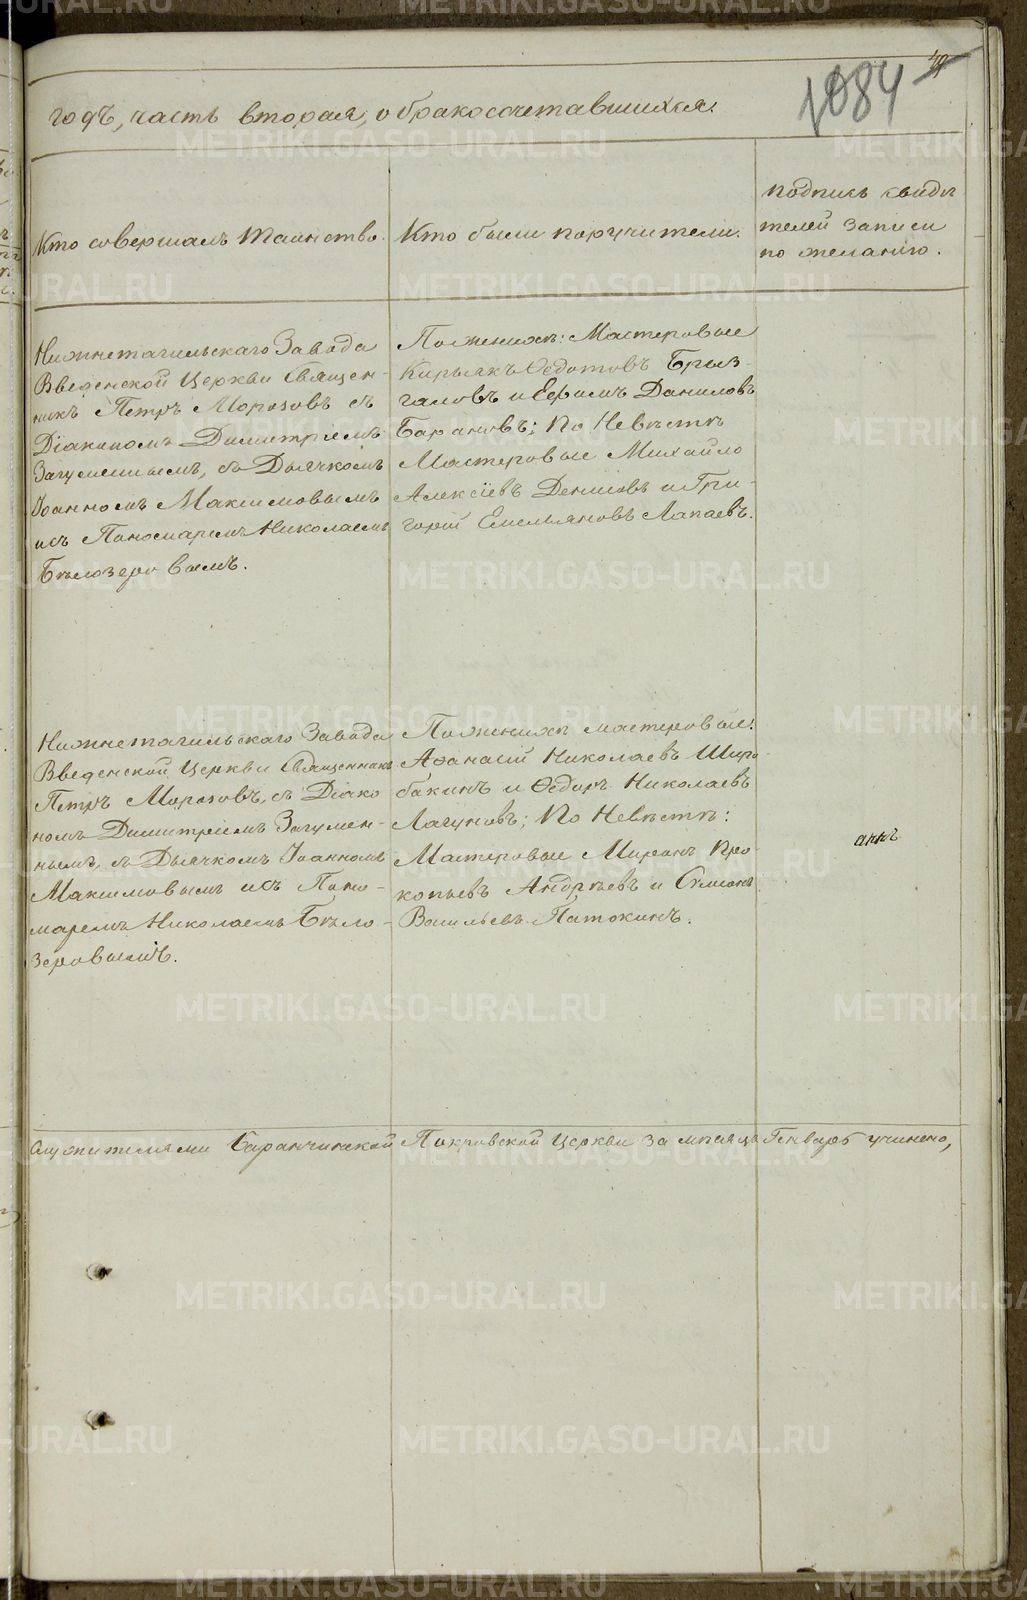 49
1084
годъ, часть вторая, о бракосочетавшихся.
Кто совершалъ таинство.
Кто были поручители.
подпись свидѣ
телей записи
по желанію.
Нижнетагильскаго Завода
Введенской Церкви Священ-
никъ Петръ Морозовъ съ
Діакономъ Димитріемъ
Загуменнымъ, съ Дьячкомъ
Іоанномъ Максимовымъ
и съ Пономаремъ Николаемъ
Бѣлозеровымъ.
По женихѣ: Мастеровые
Кирьякъ Ѳедотовъ Брыз-
галовъ и Ефимъ Даниловъ
Барановъ; По Невѣстѣ
Мастеровые Михайло
Алексѣевъ Денисовъ и Гри-
горій Емельяновъ Лапаевъ.
Нижнетагильскаго Завода
Введенской Церкви Священникъ
Петръ Морозовъ, съ Діако
номъ Димитріемъ Загумен-
нымъ, съ Дьячкомъ Іоанномъ
Максимовымъ и съ Поно-
маремъ Николаемъ Бѣло-
зеровымъ.
По женихѣ мастеровые:
Аѳанасій Николаевъ Широ
бакинъ и Ѳедоръ Николаевъ
Лагуновъ; По Невѣстѣ:
Мастеровые Миронъ Про-
копьевъ Андрѣевъ и Симеонъ
Васильевъ Патокинъ.
служителями Баранчинской Покровской Церкви за мѣсяцъ Генварь учинено,
METRIKI.GASO-URAL.RU